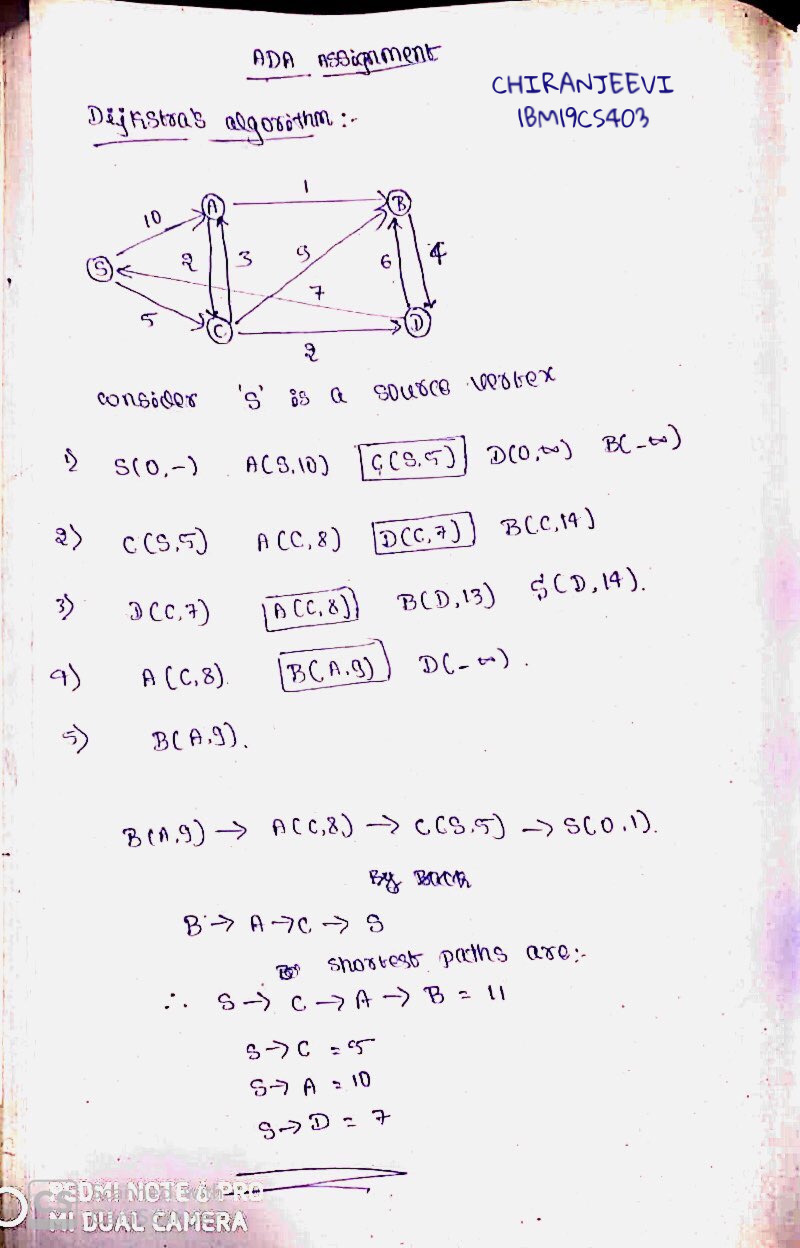 ADA Assignment
CHIRANJEEVI
1BM19CS403
Dijkstra's algorithm :-
10 A 1 B
S 2 3 9 6 4
7
5 C D
2
consider 's' is a source vertex
1) S(0,-) A(S,10) C(S,5) D(0,∞) B(-∞)
2) C(S,5) A(C,8) D(C,7) B(C,14)
3) D(C,7) A(C,8) B(D,13) S(D,14).
4) A(C,8). B(A,9) D(-∞).
5) B(A,9).
B(A,9) → A(C,8) → C(S,5) → S(0,1).
By Back
B → A → C → S
shortest paths are:-
∴ S → C → A → B = 11
S → C = 5
S → A = 10
S → D = 7
REDMI NOTE 6 PRO
MI DUAL CAMERA